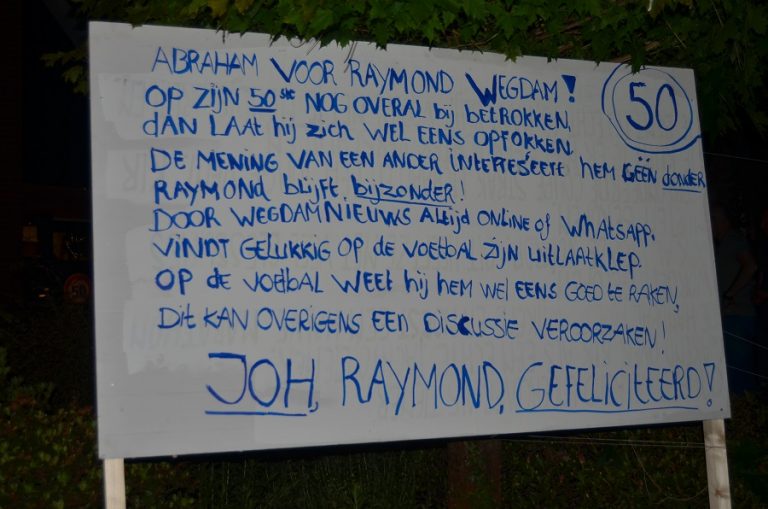 ABRAHAM VOOR RAYMOND WEGDAM!
50
OP ZIJN 50ste NOG OVERAL bij bETROKKEN,
dAN LAAT hij zich WEL EENS OPFOKKEN.
DE MENING VAN EEN ANDER INTERESEERT HEM GEËN dONdER
RAYMOND blijft bijzonder!
DOOR WEGDAMNIEUWS Altijd ONLINE of WhatsAPP.
VINDT GELUKKIG OP de VOETBAL ZijN UITLAATKLEP.
OP de VOETBAL WEET hij hEM WEL EENS GOEd te RAKEN,
DIT KAN OVERIGENS EEN DISCUSSIE VEROORZAKEN!
JOH, RAYMOND, GEFELICITEERD!